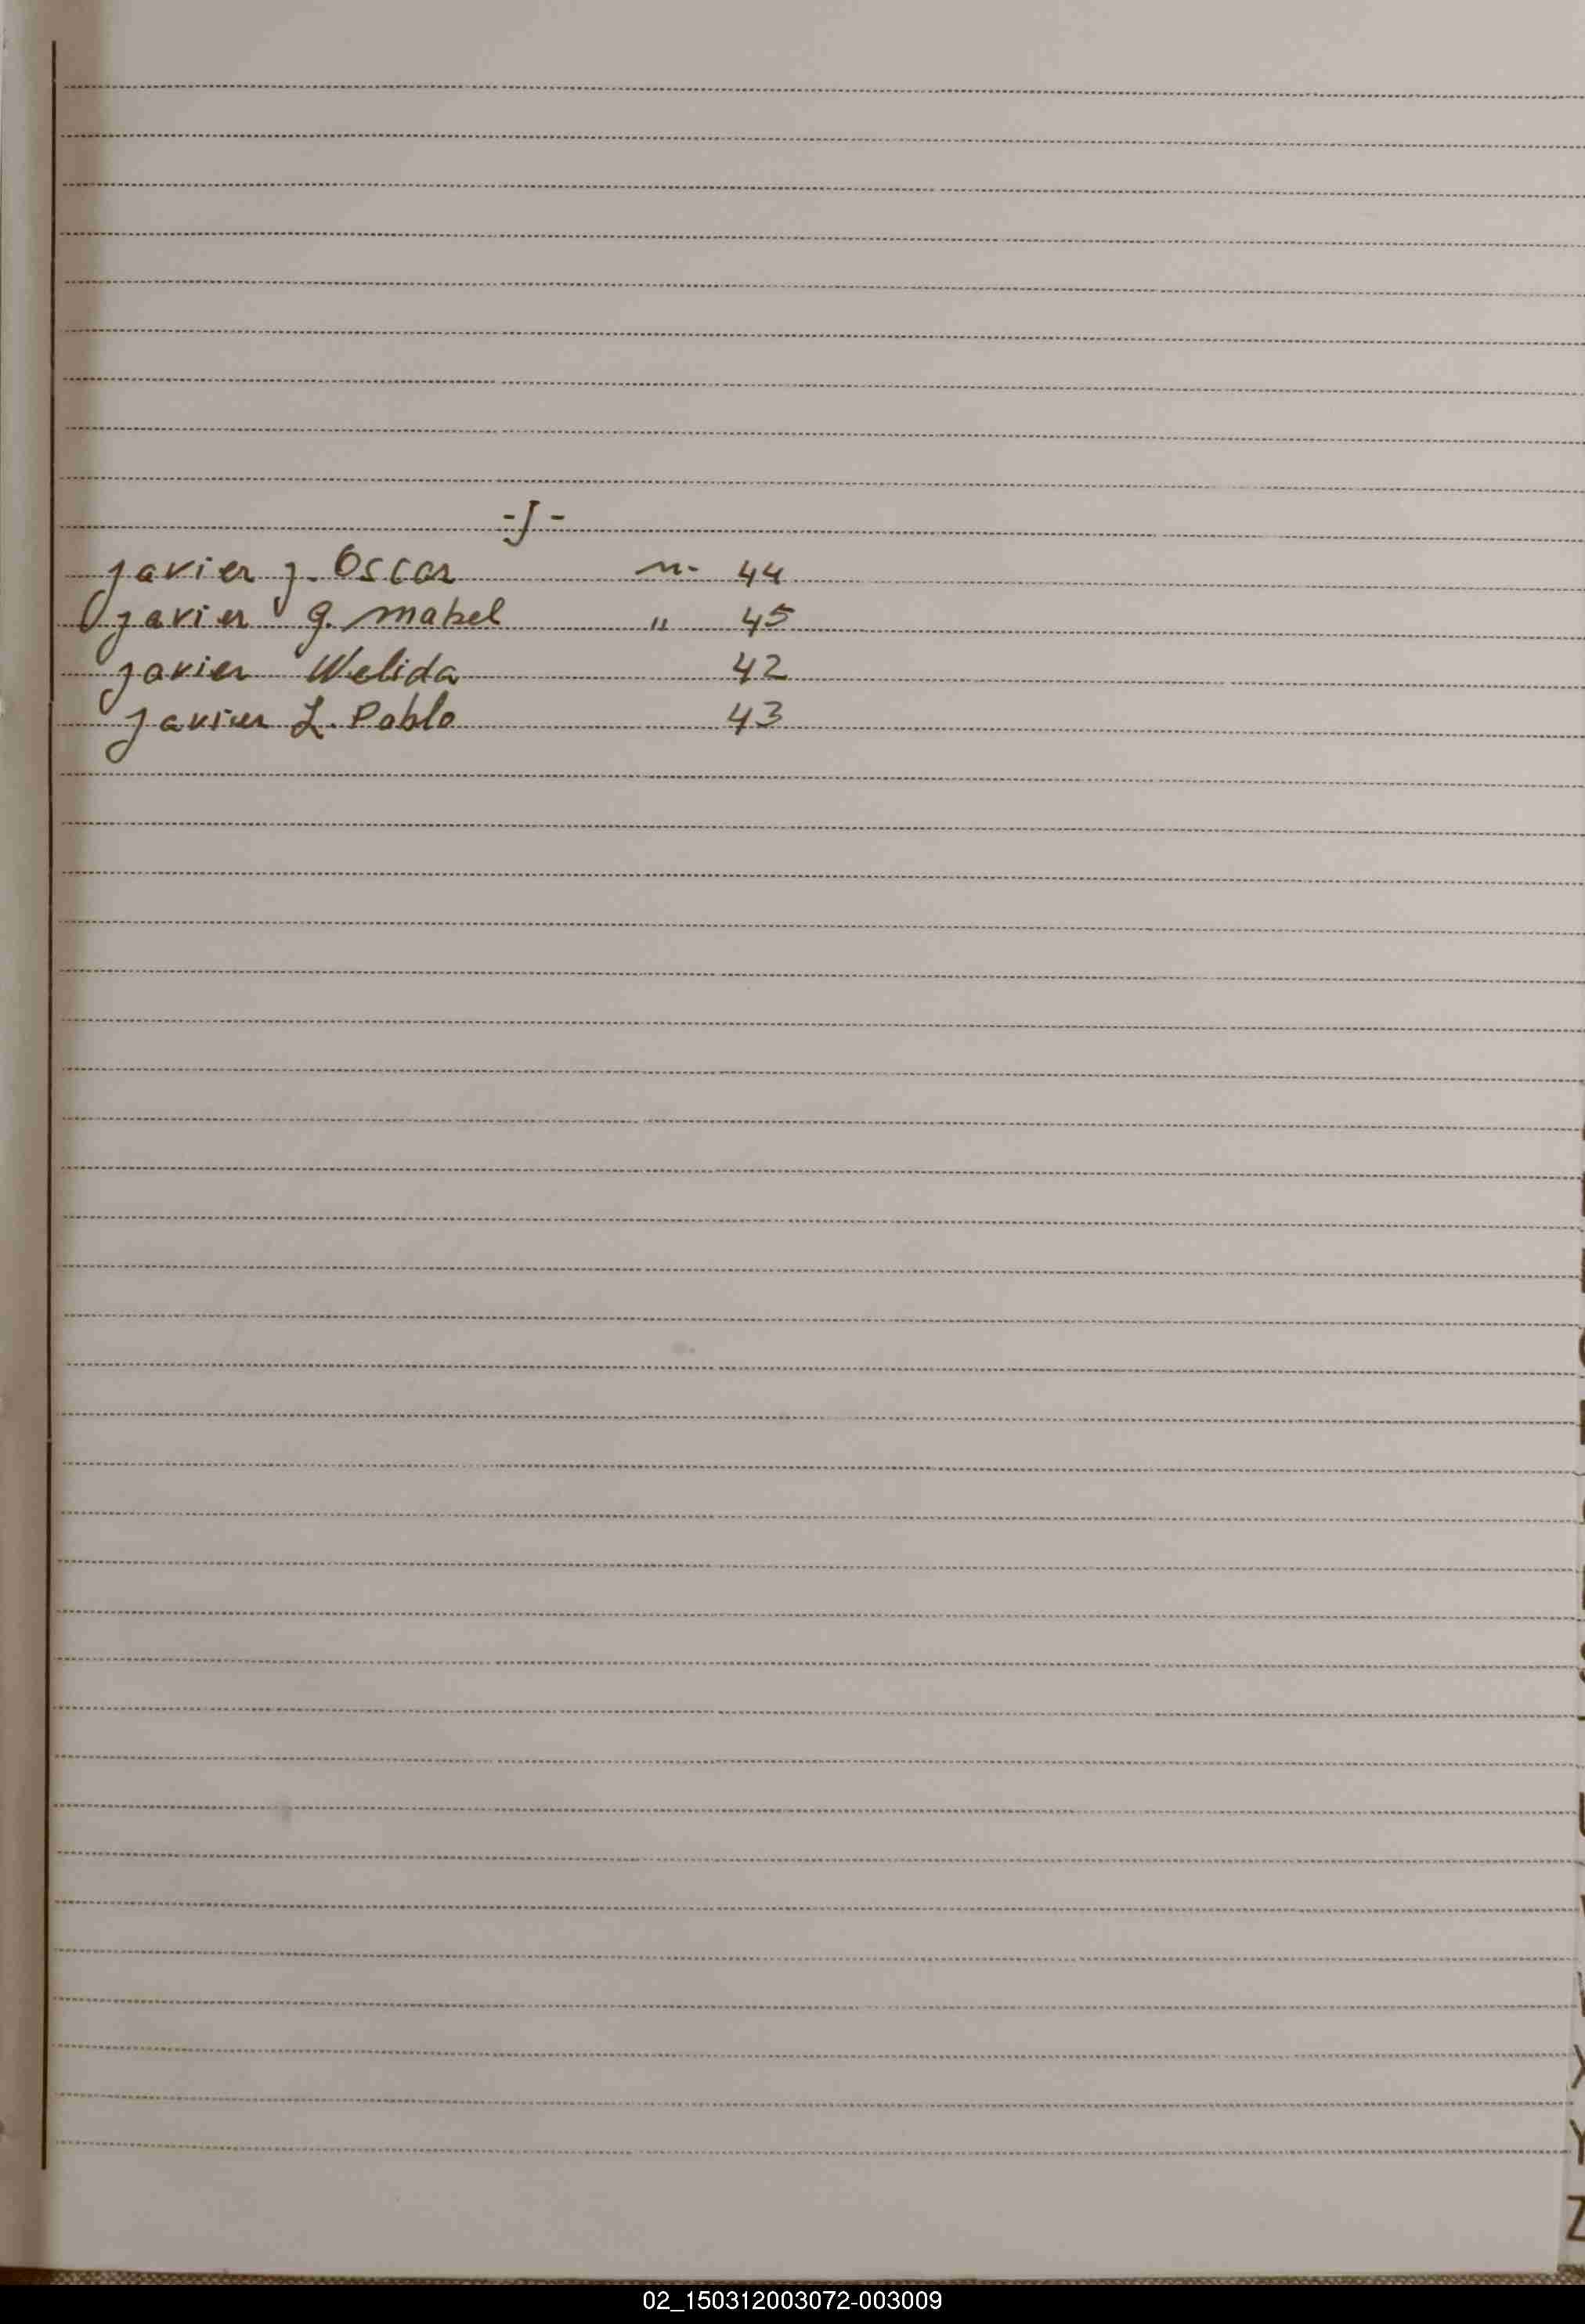 -J-
Javier J. Oscar n- 44
Javier G. Mabel " 45
Javier Welida 42
Javier L. Pablo 43
X
Y
Z
02_150312003072-003009